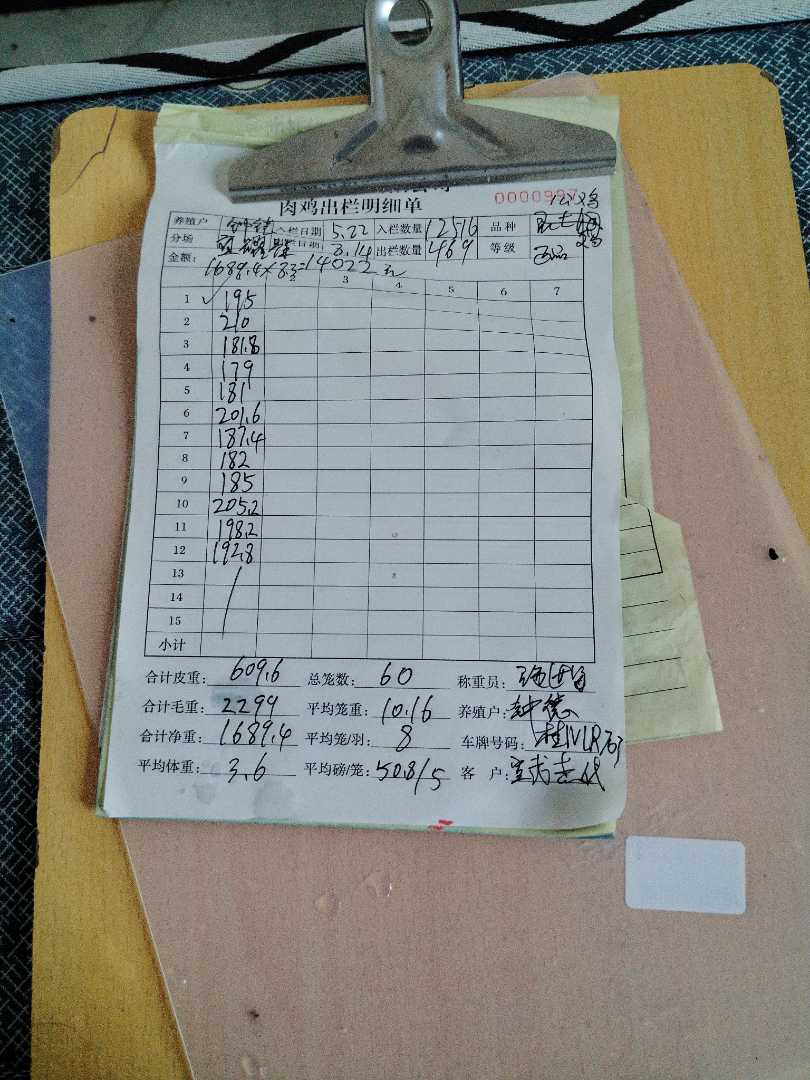 肉鸡出栏明细单 0000997
养殖户 入栏日期 5.22 入栏数量 12516 品种
分场 出栏日期: 8.14 出栏数量 469 等级
金额: 1689.4×8.3=14022元
1 2 3 4 5 6 7
1 195
2 210
3 181.8
4 179
5 181
6 201.6
7 187.4
8 182
9 185
10 205.2
11 198.2
12 192.8
13
14
15
小计
合计皮重: 609.6 总笼数: 60 称重员:
合计毛重: 2299 平均笼重: 10.16 养殖户:
合计净重: 1689.4 平均笼/羽: 8 车牌号码:
平均体重: 3.6 平均磅/笼: 50.8/5 客 户: